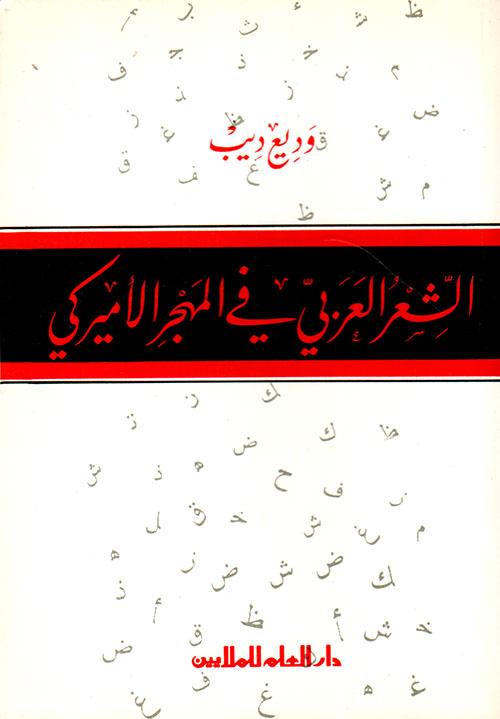 وَدِيع دِيبْ
الشِّعْرُ العَرَبيّ في المَهْجَرِ الأَميركي
دار العلم للملايين